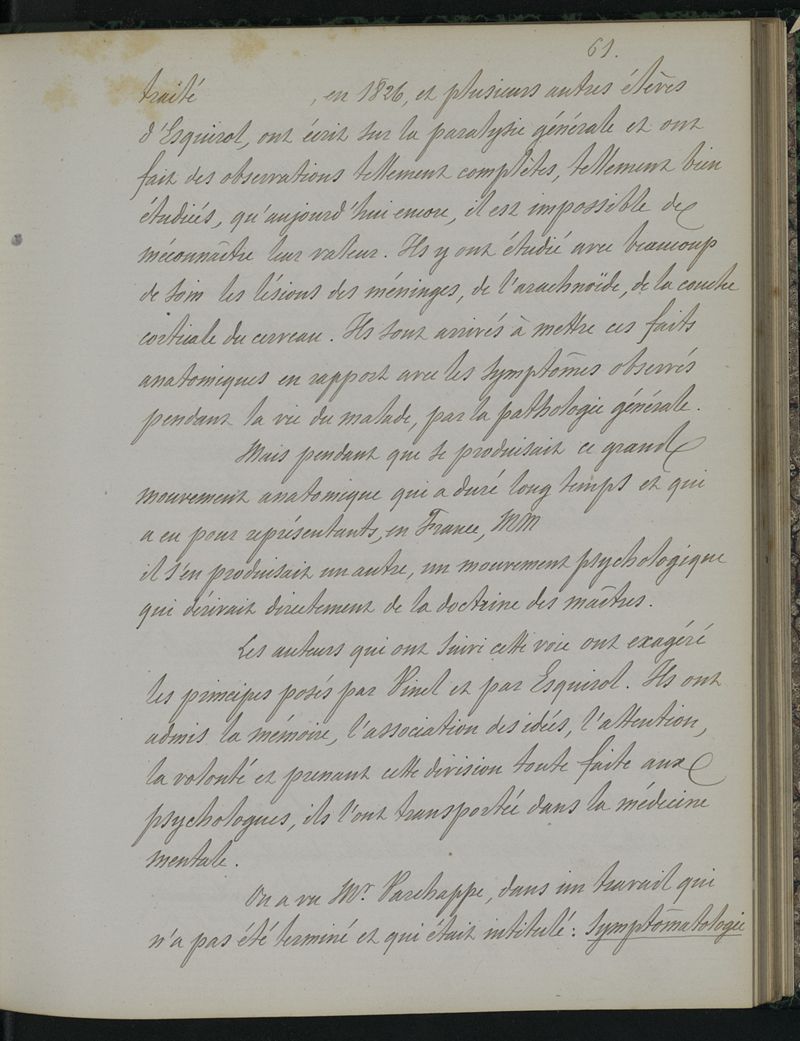 61.
traité , en 1826, et plusieurs autres élèves
d'Esquirol, ont écrit sur la paralysie générale et ont
fait des observations tellement complètes, tellement bien
étudiées, qu'aujourd'hui encore, il est impossible de
méconnaître leur valeur. Ils y ont étudié avec beaucoup
de soin les lésions des méninges, de l'arachnoïde, de la couche
corticale du cerveau. Ils sont arrivés à mettre ces faits
anatomiques en rapport avec les symptômes observés
pendant la vie du malade, par la pathologie générale.
Mais pendant que se produisait ce grand
mouvement anatomique qui a duré long temps et qui
a eu pour représentants, en France, MM
il s'en produisait un autre, un mouvement psychologique
qui dérivait directement de la doctrine des maîtres.
Les auteurs qui ont suivi cette voie ont exagéré
les principes posés par Pinel et par Esquirol. Ils ont
admis la mémoire, l'association des idées, l'attention,
la volonté et prenant cette division toute faite aux
psychologues, ils l'ont transportée dans la médecine
mentale.
On a vu Mr. Parchappe, dans un travail qui
n'a pas été terminé et qui était intitulé : Symptômatologie